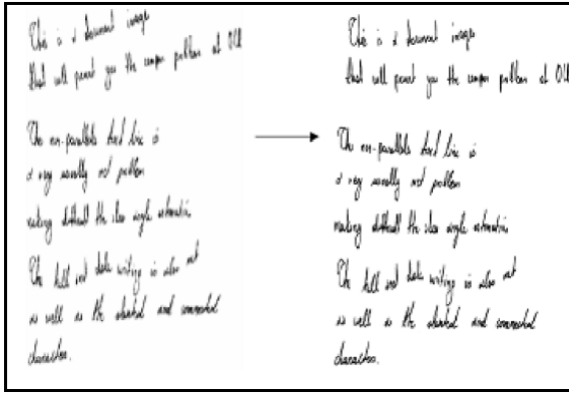 This is a document image
that will present you the common problem at OCR
The non-parallels text line is
a very usually met problem
making difficult the slew angle estimation,
The hill and dale writing is also met
as well as the slanted and connected
characters.
This is a document image
that will present you the common problem at OCR
The non-parallels text line is
a very usually met problem
making difficult the slew angle estimation,
The hill and dale writing is also met
as well as the slanted and connected
characters.